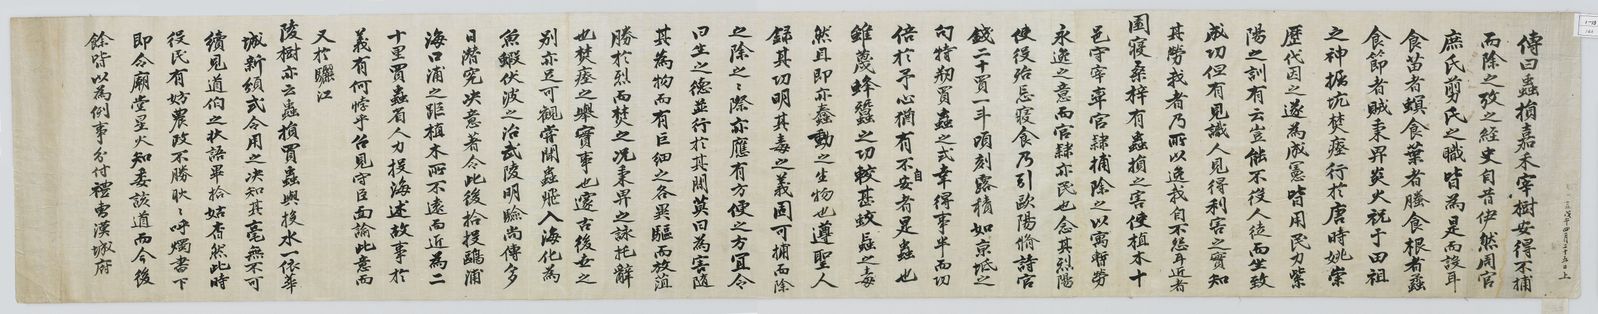 傳曰蟲損嘉禾宰樹安得不捕
而除之攷之經史自昔伊然周官
庶氏剪氏之職皆為是而設耳
食苗者螟食葉者螣食根者蟊
食節者賊秉畀炎火祝于田祖
之神掘坑焚瘞行於唐時姚崇
歷代因之遂為成憲皆用民力紫
陽之訓有云豈能不役人徒而坐致
成功但有見識人見得利害之實知
其勞我者乃所以逸我自不怨耳近者
園寢桑梓有蟲損之害使植木十
邑守宰率官隷捕除之以寓暫勞
永逸之意而官隷亦民也念其烈陽
使役殆忘寢食乃引歐陽脩詩官
錢二十買一斗頃刻露積如京坻之
句特刱買蟲之式幸得事半而功
倍於予心猶有不自安者是蟲也
雖蔑蜂蠶之功較甚蚊蝱之毒
然且即亦蠢動之生物也遵聖人
錄其功明其毒之義固可捕而除
之除之之際亦應有方便之方宜令
曰生之德並行於其間英曰為害隨
其為物而有巨細之各異驅而放菹
勝於烈而焚之况秉畀之詠托辭
也焚瘞之舉實事也邃古後世之
別亦足可觀嘗聞蟲飛入海化為
魚鰕伏波之治武陵明驗尚傳多
日潛究决意著令此後拾投鷗浦
海口浦之距植木所不遠而近為二
十里買蟲省人力投海述故事於
義有何悖乎台見守臣面諭此意而
又於驪江
陵樹亦云蟲損買蟲與投水一依華
城新頒式令用之决知其毫無不可
續見道伯之狀語畢拾姑杳然此時
役民有妨農政不勝耿耿呼燭書下
即令廟堂星火知委該道而今後
餘皆以為例事分付禮曹漢城府